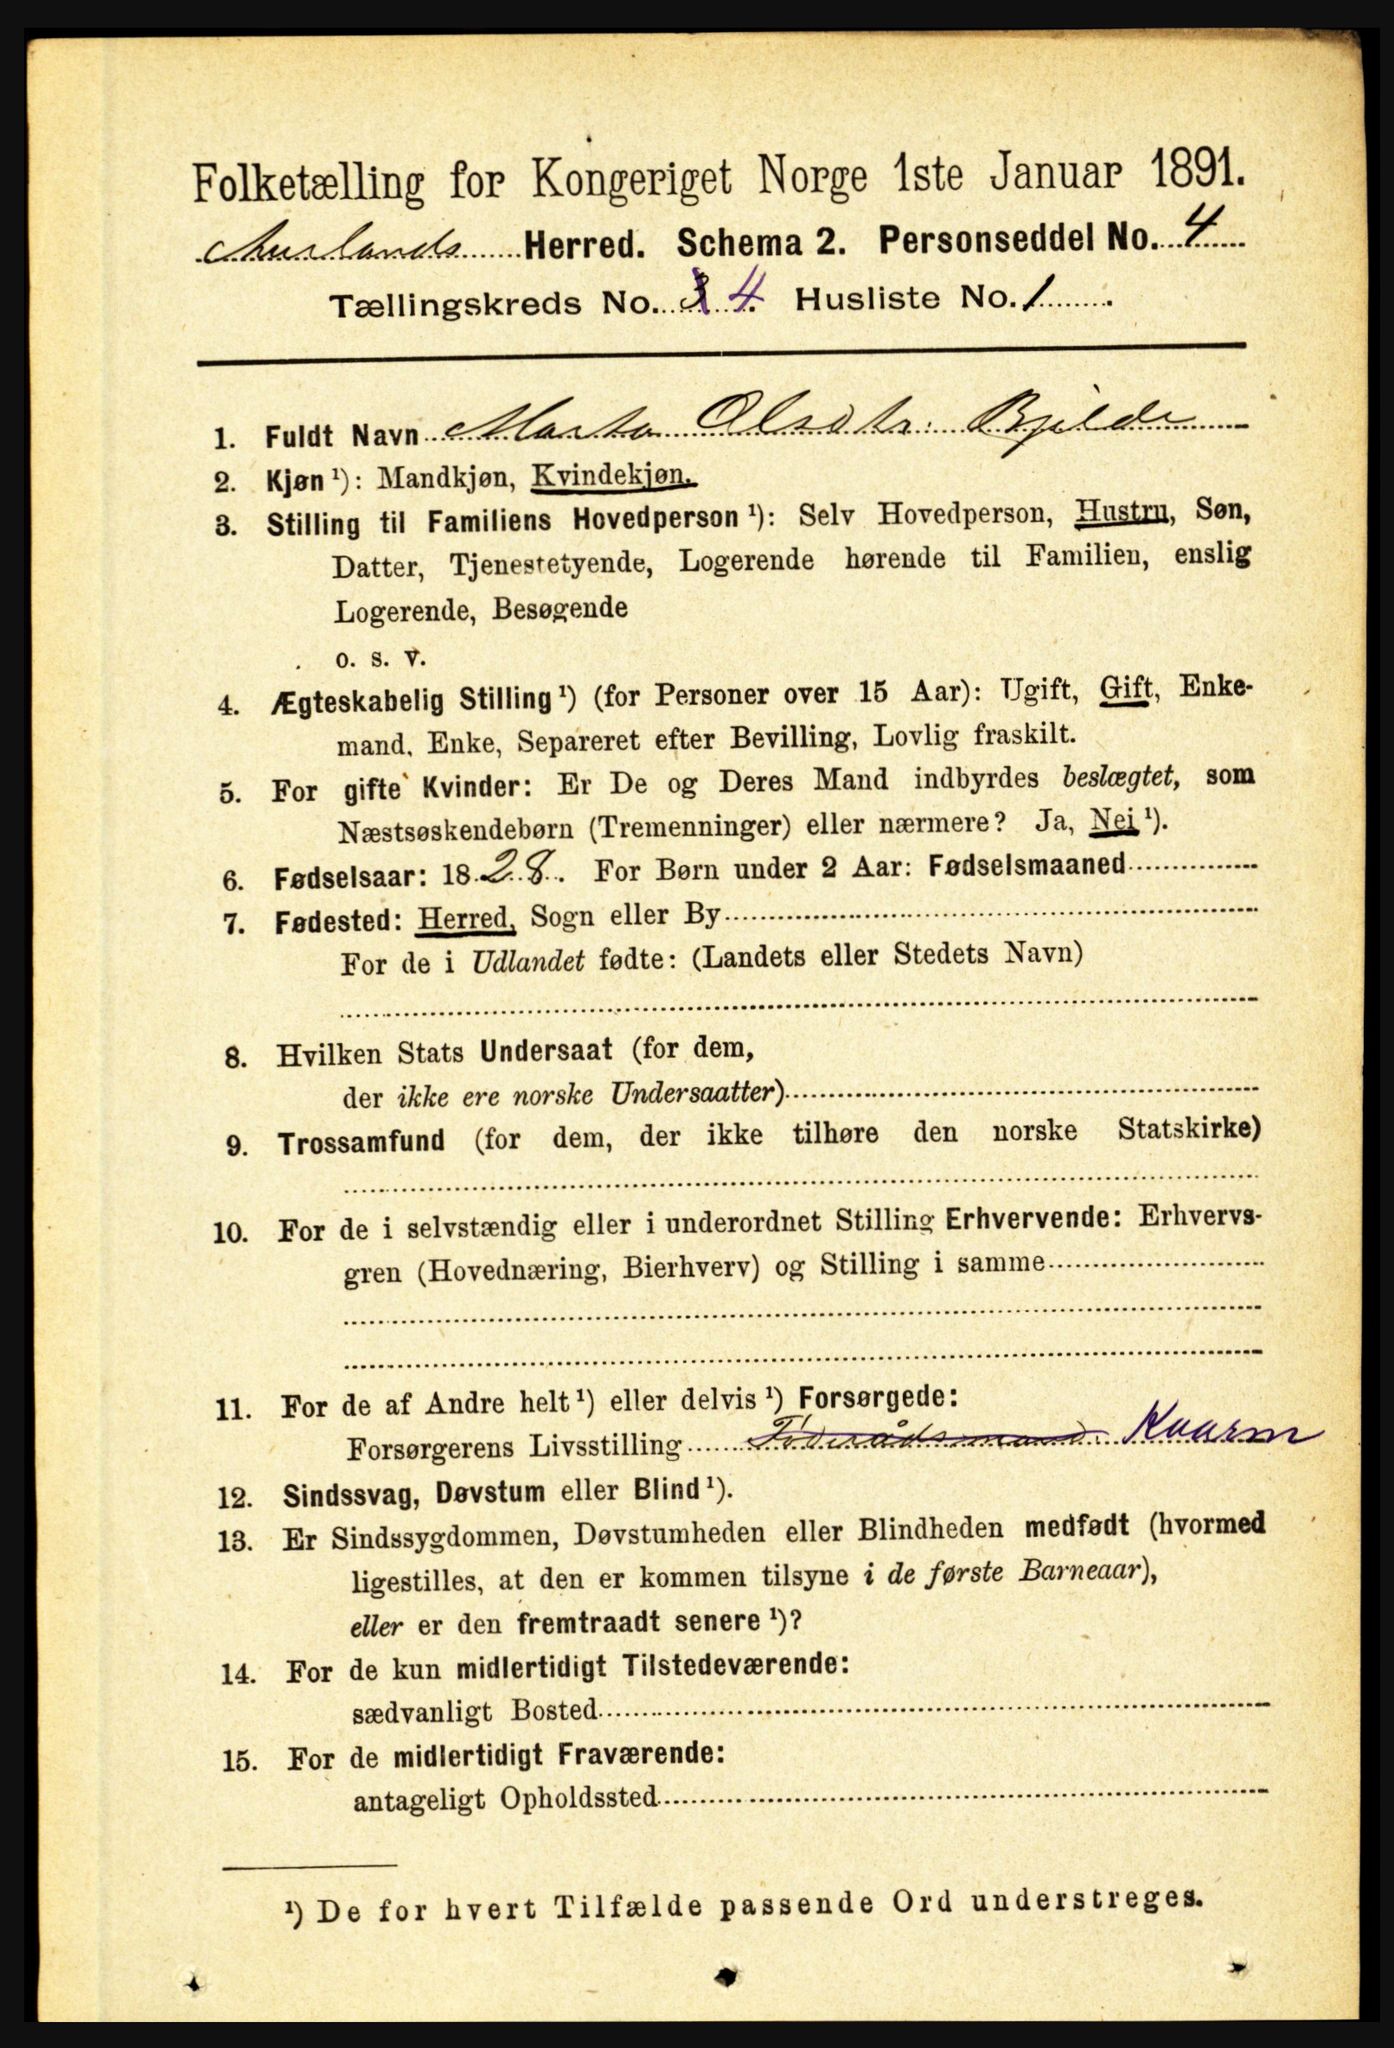 Folketælling for Kongeriget Norge 1ste Januar 1891.
Aurlands Herred. Schema 2. Personseddel No. 4
Tællingskreds No. 3 4. Husliste No. 1
1. Fuldt Navn Marta Olsdtr. Bjelde
2. Kjøn ¹): Mandkjøn, Kvindekjøn.
3. Stilling til Familiens Hovedperson ¹): Selv Hovedperson, Hustru, Søn,
Datter, Tjenestetyende, Logerende hørende til Familien, enslig
Logerende, Besøgende
o. s. v.
4. Ægteskabelig Stilling ¹) (for Personer over 15 Aar): Ugift, Gift, Enke-
mand, Enke, Separeret efter Bevilling, Lovlig fraskilt.
5. For gifte Kvinder: Er De og Deres Mand indbyrdes beslægtet, som
Næstsøskendebørn (Tremenninger) eller nærmere? Ja, Nei ¹).
6. Fødselsaar: 1828. For Børn under 2 Aar: Fødselsmaaned
7. Fødested: Herred, Sogn eller By
For de i Udlandet fødte: (Landets eller Stedets Navn)
8. Hvilken Stats Undersaat (for dem,
der ikke ere norske Undersaatter)
9. Trossamfund (for dem, der ikke tilhøre den norske Statskirke)
10. For de i selvstændig eller i underordnet Stilling Erhvervende: Erhvervs-
gren (Hovednæring, Bierhverv) og Stilling i samme
11. For de af Andre helt ¹) eller delvis ¹) Forsørgede:
Forsørgerens Livsstilling Føderådsmand. Kaarm
12. Sindssvag, Døvstum eller Blind ¹).
13. Er Sindssygdommen, Døvstumheden eller Blindheden medfødt (hvormed
ligestilles, at den er kommen tilsyne i de første Barneaar),
eller er den fremtraadt senere ¹)?
14. For de kun midlertidigt Tilstedeværende:
sædvanligt Bosted
15. For de midlertidigt Fraværende:
antageligt Opholdssted
¹) De for hvert Tilfælde passende Ord understreges.